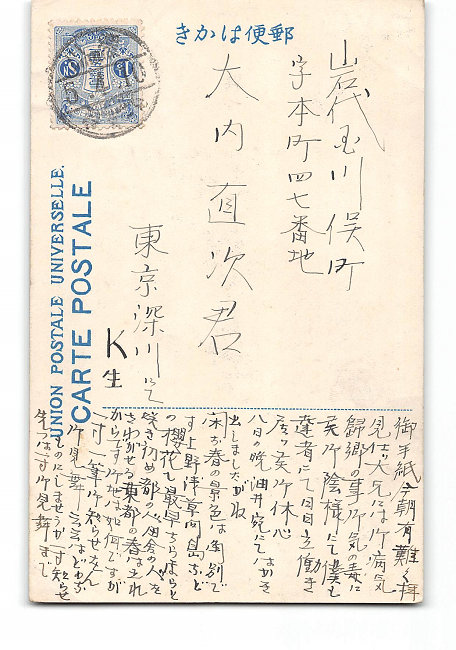 郵便はかき
岩代国川俣町
字本町四七番地
大内直次君
東京深川にて
K生
UNION POSTALE UNIVERSELLE.
CARTE POSTALE
御手紙今朝有難く拝
見仕候大兄には御病気
帰郷の事御気の毒に
候御陰様にて僕も
達者にて日日立働き
居り候御休心
八日の晩油井宛にてはがき
出しましたがね
春の景色は角別で
す上野浅草向島など
の櫻花も最早ちらほらと
咲き初め都の人田舎の人を
さわがせる東都の春はこれ
からです御地は如何ですか
一寸一筆御知らせ
御見舞
ものにしませうが一寸
先つは一寸御見舞まで